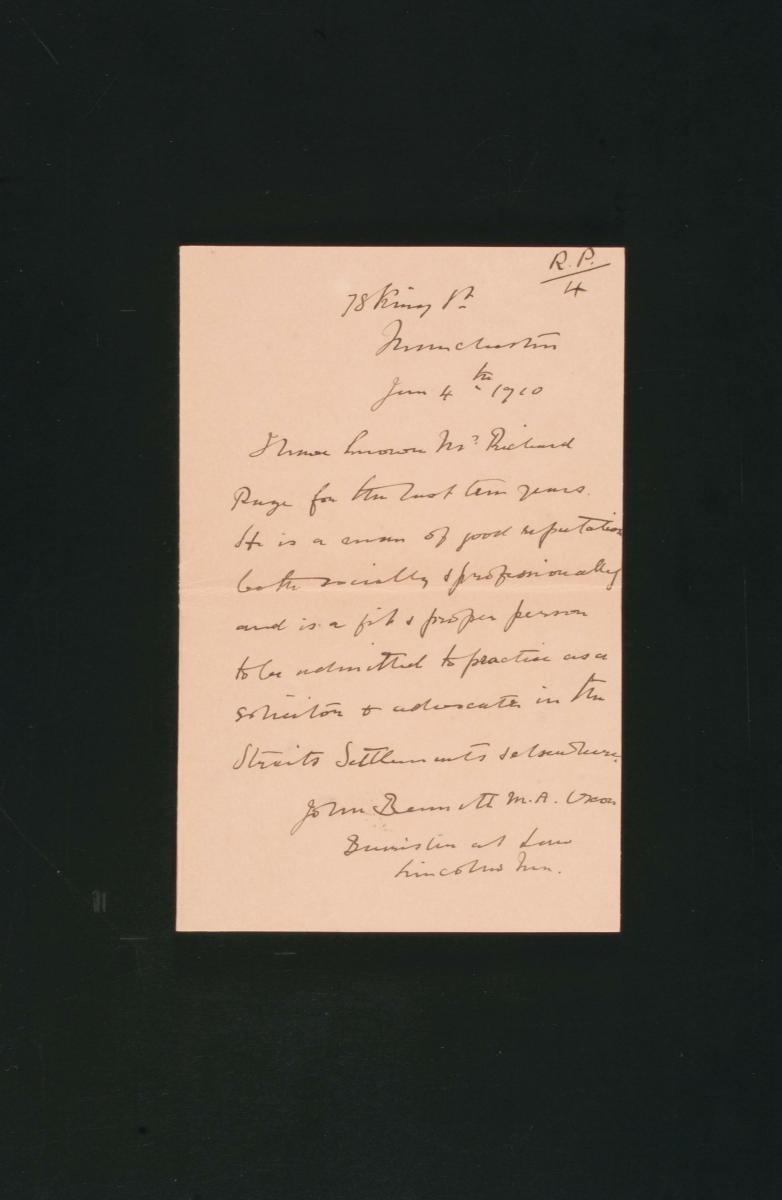 R.P.
4
78 King St
Manchester
Jan 4th 1910
I have known Mr Richard
Page for the last ten years.
He is a man of good reputation
both socially & professionally
and is a fit & proper person
to be admitted to practise as a
solicitor & advocate in the
Straits Settlements & elsewhere.
John Bennett M.A. Oxon
Barrister at Law
Lincolns Inn.